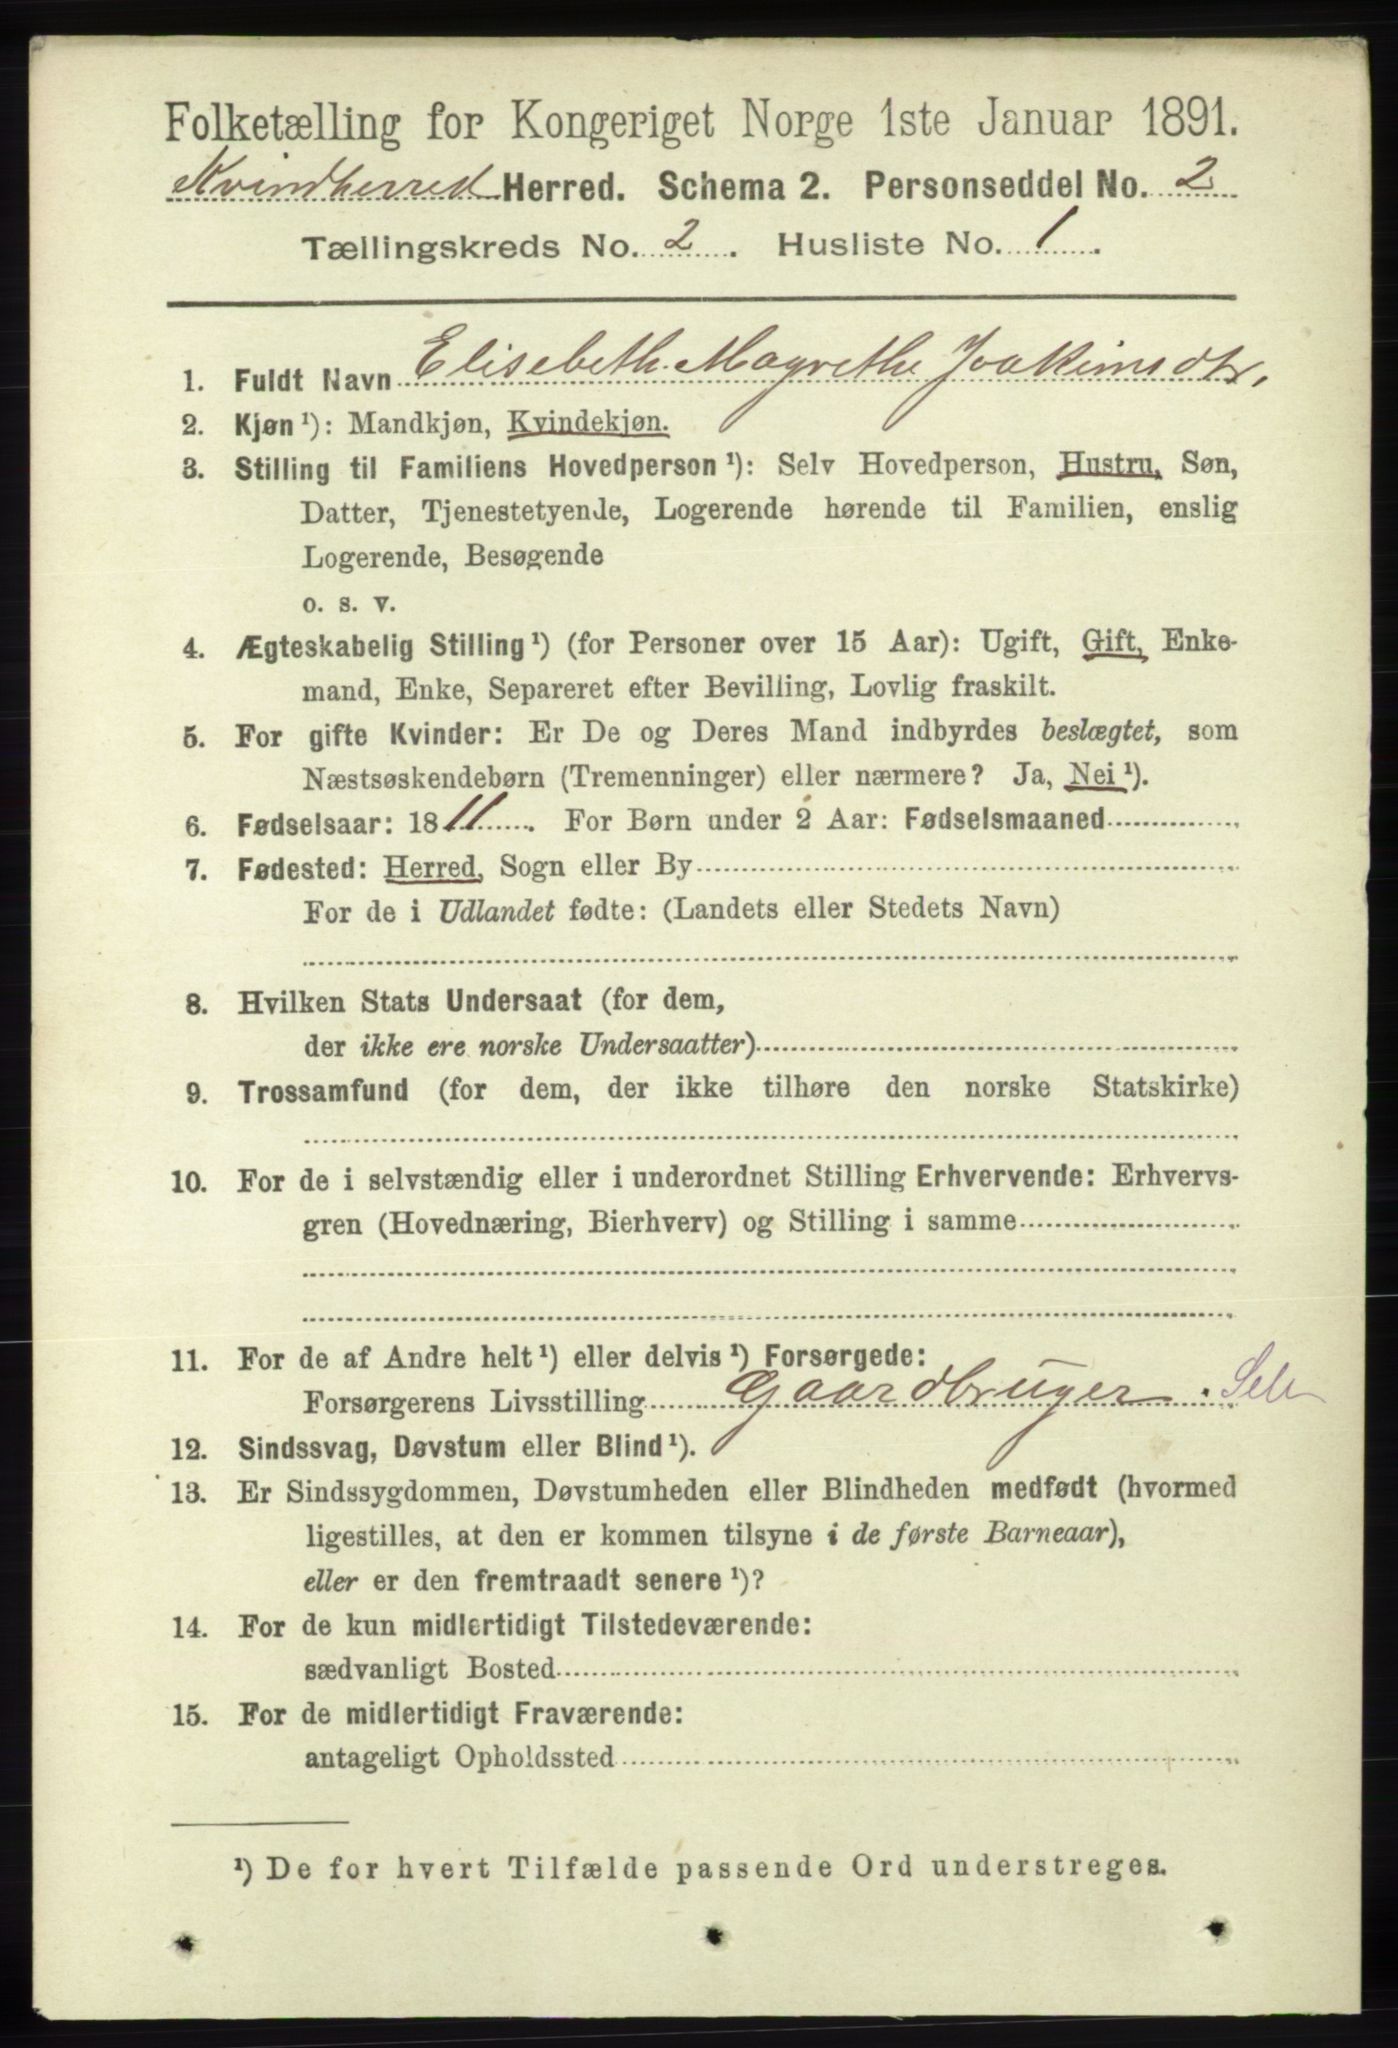 Folketælling for Kongeriget Norge 1ste Januar 1891.
Kvindherred Herred. Schema 2. Personseddel No. 2
Tællingskreds No. 2. Husliste No. 1.
1. Fuldt Navn Elisebeth Magrethe Joakimsdtr.
2. Kjøn ¹): Mandkjøn, Kvindekjøn.
3. Stilling til Familiens Hovedperson ¹): Selv Hovedperson, Hustru, Søn,
Datter, Tjenestetyende, Logerende hørende til Familien, enslig
Logerende, Besøgende
o. s. v.
4. Ægteskabelig Stilling ¹) (for Personer over 15 Aar): Ugift, Gift, Enke-
mand, Enke, Separeret efter Bevilling, Lovlig fraskilt.
5. For gifte Kvinder: Er De og Deres Mand indbyrdes beslægtet, som
Næstsøskendebørn (Tremenninger) eller nærmere? Ja, Nei ¹).
6. Fødselsaar: 1811. For Børn under 2 Aar: Fødselsmaaned
7. Fødested: Herred, Sogn eller By
For de i Udlandet fødte: (Landets eller Stedets Navn)
8. Hvilken Stats Undersaat (for dem,
der ikke ere norske Undersaatter)
9. Trossamfund (for dem, der ikke tilhøre den norske Statskirke)
10. For de i selvstændig eller i underordnet Stilling Erhvervende: Erhvervs-
gren (Hovednæring, Bierhverv) og Stilling i samme
11. For de af Andre helt ¹) eller delvis ¹) Forsørgede:
Forsørgerens Livsstilling Gaardbruger. Sele
12. Sindssvag, Døvstum eller Blind ¹).
13. Er Sindssygdommen, Døvstumheden eller Blindheden medfødt (hvormed
ligestilles, at den er kommen tilsyne i de første Barneaar),
eller er den fremtraadt senere ¹)?
14. For de kun midlertidigt Tilstedeværende:
sædvanligt Bosted
15. For de midlertidigt Fraværende:
antageligt Opholdssted
¹) De for hvert Tilfælde passende Ord understreges.